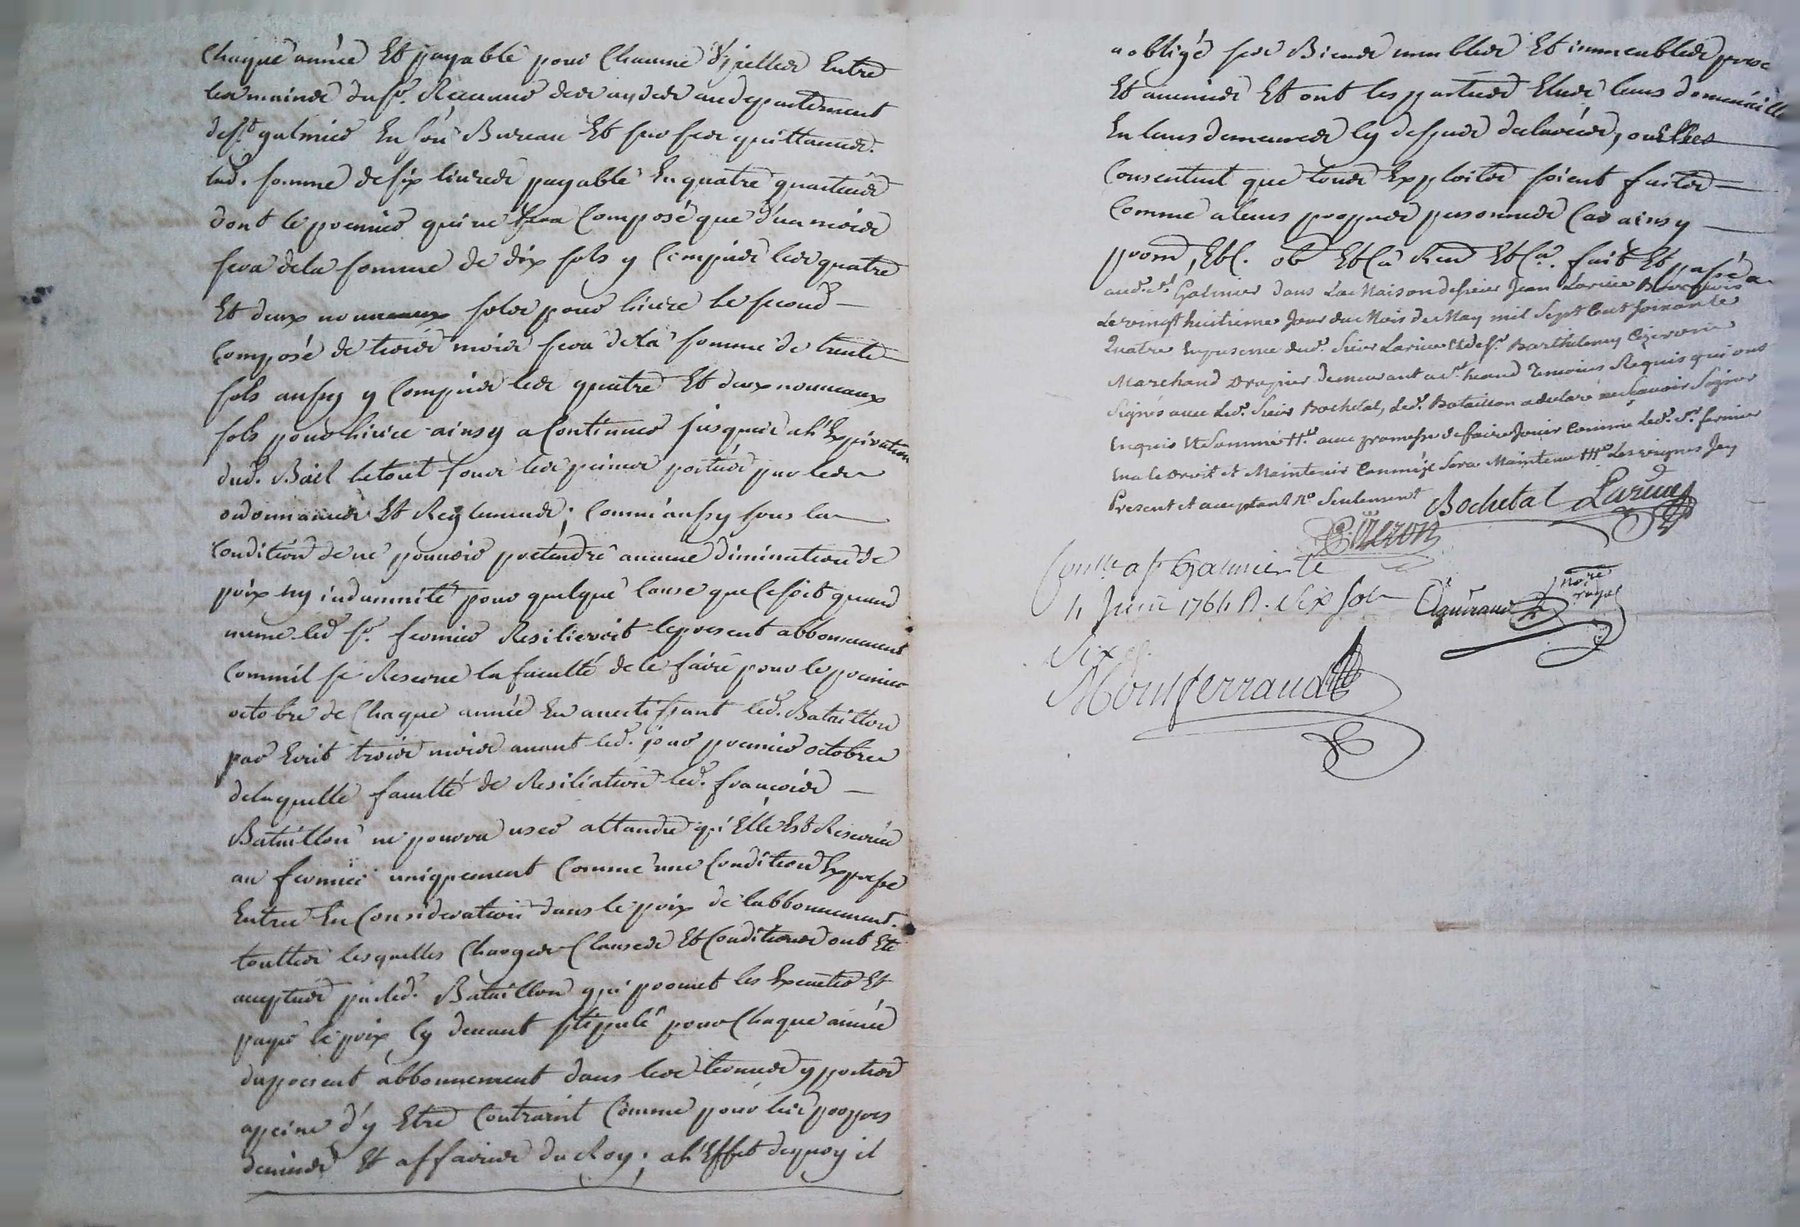 Chaque année Et payable pour Chacune d'ycelles Entre
les mains du Sr. Receveur des aydes au departement
de St. galmier En son Bureau Et sur ses quittances.
lad. somme de six livres payable En quatre quartiers
dont le premier qui ne sera Composé que d'un mois
sera de la somme de dix sols y Compris les quatre
Et deux nouveaux sols pour livre le second
Composé de trois mois sera de la somme de trente
sols aussy y Compris les quatre Et deux nouveaux
sols pour livre ainsy a Continuer jusques a l'Expiration
dud. Bail le tout sous les peines portées par les
ordonnances Et Reglements; Comm'aussy sous la
Condition de ne pouvoir pretendre aucune diminution de
prix ny indamnité pour quelque Cause que ce soit quand
meme led. Sr. fermier Resilieroit le present abbonnement
Comm'il se Reserve la faculté de le faire pour le premier
octobre de Chaque année En avertissant led. Bataillon
par Ecrit trois mois avant led. jour premier octobre
de laquelle faculté de Resiliation led. françois
Bataillon ne pourra user attandu qu'Elle Est Reservée
au fermier uniquement Comme une Condition Expresse
Entrée En Consideration dans le prix de l'abbonnement.
touttes lesquelles Charges Clauses Et Conditions ont Eté
acceptées par led. Bataillon qui promet les Executer Et
payer le prix Cy devant stipulé pour Chaque année
du present abbonnement dans les termes y portés
apeine d'y Etre Contraint Comme pour les propres
deniers Et affaires du Roy; a l'Effet de quoy il
a obligé ses Biens meubles Et immeubles
Et avenirs Et ont les parties Elues leurs domiciles
En leurs demeures Cy dessus declarées, ou Elles
Consentent que tous Exploits soient faits
Comme a leurs propres personnes Car ainsy
prom, Etc. ob Et Ca Ren Et Ca. fait Et passé a
aud. St. Galmier dans La Maison de sieur Jean Larive Bourgeois
Le vingt huitieme Jour du Mois de May mil Sept Cent Soixante
Quatre En presence dud. Sieur Larive Et de Sr. Barthelemy Cizeron
Marchand Drapier demeurant a St. heand Temoins Requis qui ont
Signés avec Led. Sieur Bochetal, Led. Bataillon a declaré ne Scavoir Signer
Enquis Et Sommé avec promesse de faire Jouir Comme Led. Sr. fermier
En a le Droit Et Maintenir Comme je Sera Maintenu
Present et acceptant Seulement Bochetal Larive
Cizeron
Conlle a St Galmier le
4 Juin 1764 R. Six Sols
Six S.
nore royal
Montferrand